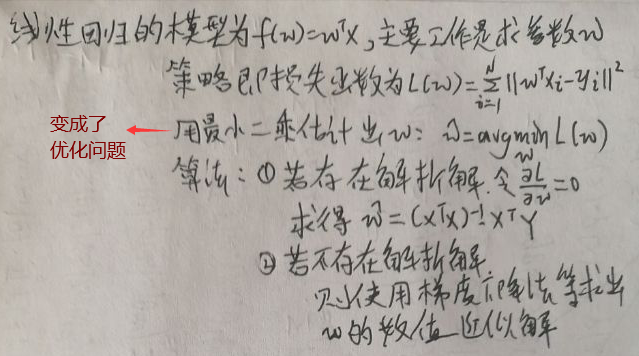 线性回归的模型为f(w)=wᵀx,主要工作是求参数w
策略即损失函数为L(w)=∑ᵢ₌₁ᴺ||wᵀxᵢ-yᵢ||²
变成了
优化问题
用最小二乘估计出w: ŵ=argmin L(w)
w
算法:① 若存在解析解.令∂L/∂w=0
求得 ŵ=(XᵀX)⁻¹XᵀY
② 若不存在解析解
则使用梯度下降法等求出
w的数值近似解